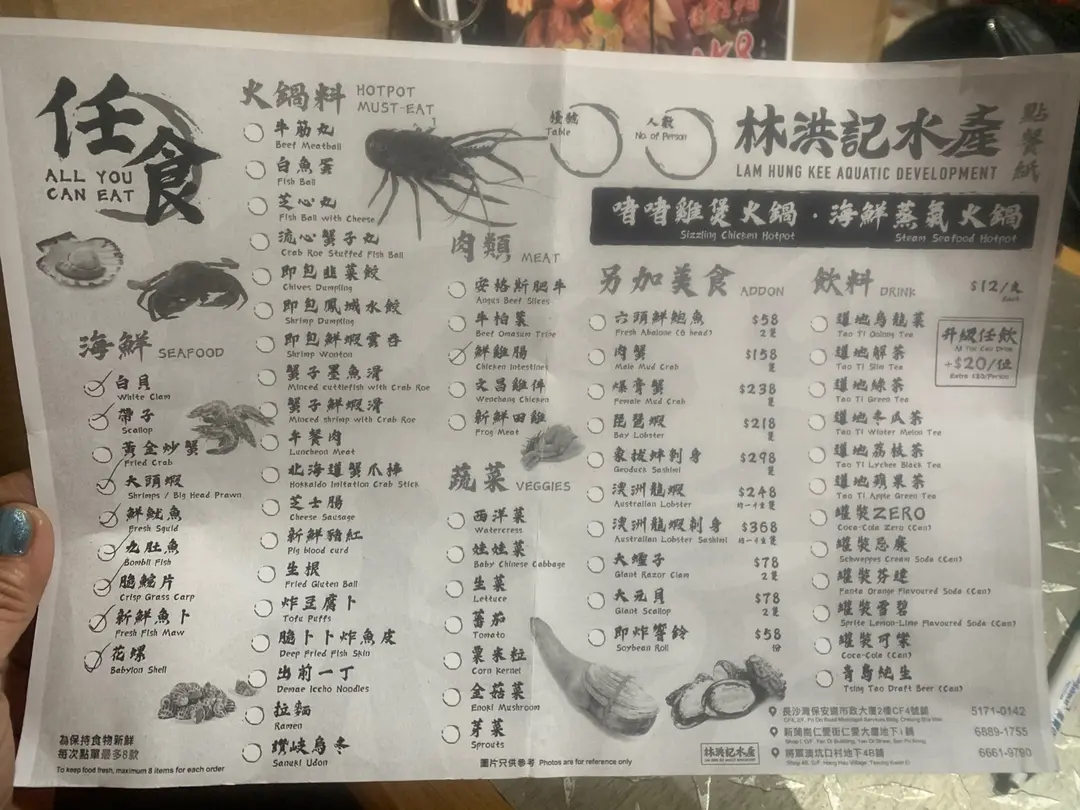 任食
ALL YOU
CAN EAT
海鮮 SEAFOOD
白貝
White Clam
帶子
Scallop
黃金炒蟹
Fried Crab
大頭蝦
Shrimps / Big Head Prawn
鮮魷魚
Fresh Squid
九肚魚
Bombil Fish
脆鯇片
Crisp Grass Carp
新鮮魚卜
Fresh Fish Maw
花螺
Babylon Shell
為保持食物新鮮
每次點單最多8款
To keep food fresh, maximum 8 items for each order
火鍋料 HOTPOT
MUST-EAT
牛筋丸
Beef Meatball
白魚蛋
Fish Ball
芝心丸
Fish Ball with Cheese
流心蟹子丸
Crab Roe Stuffed Fish Ball
即包韭菜餃
Chives Dumpling
即包鳳城水餃
Shrimp Dumpling
即包鮮蝦雲吞
Shrimp Wonton
蟹子墨魚滑
Minced cuttlefish with Crab Roe
蟹子鮮蝦滑
Minced shrimp with Crab Roe
午餐肉
Luncheon Meat
北海道蟹爪棒
Hokkaido Imitation Crab Stick
芝士腸
Cheese Sausage
新鮮豬紅
Pig blood curd
生根
Fried Gluten Ball
炸豆腐卜
Tofu Puffs
脆卜卜炸魚皮
Deep Fried Fish Skin
出前一丁
Demae Iccho Noodles
拉麵
Ramen
讚岐烏冬
Sanuki Udon
肉類 MEAT
安格斯肥牛
Angus Beef Slices
牛柏葉
Beef Omasum Tripe
鮮雞腸
Chicken Intestines
文昌雞件
Wenchang Chicken
新鮮田雞
Frog Meat
蔬菜 VEGGIES
西洋菜
Watercress
娃娃菜
Baby Chinese Cabbage
生菜
Lettuce
蕃茄
Tomato
粟米粒
Corn Kernel
金菇菜
Enoki Mushroom
芽菜
Sprouts
圖片只供參考 Photos are for reference only
檯號
Table
人數
No. of Person
林洪記水產
LAM HUNG KEE AQUATIC DEVELOPMENT
點餐紙
啫啫雞煲火鍋 · 海鮮蒸氣火鍋
Sizzling Chicken Hotpot Steam Seafood Hotpot
另加美食 ADDON
六頭鮮鮑魚 $58
Fresh Abalone (6 head) 2隻
肉蟹 $158
Male Mud Crab 隻
爆膏蟹 $238
Female Mud Crab 隻
琵琶蝦 $218
Bay Lobster 隻
象拔蚌刺身 $298
Geoduck Sashimi 隻
澳洲龍蝦 $248
Australian Lobster 隻
澳洲龍蝦刺身 $368
Australian Lobster Sashimi 隻
大蟶子 $78
Giant Razor Clam 2隻
大元貝 $78
Giant Scallop 2隻
即炸響鈴 $58
Soybean Roll 份
林洪記水產
飲料 DRINK $12/支
Each
升級任飲
All You Can Drink
+$20/位
Extra $20/Person
道地烏龍茶
Tao Ti Oolong Tea
道地解茶
Tao Ti Slim Tea
道地綠茶
Tao Ti Green Tea
道地冬瓜茶
Tao Ti Winter Melon Tea
道地荔枝茶
Tao Ti Lychee Black Tea
道地蘋果茶
Tao Ti Apple Green Tea
罐裝ZERO
Coca-Cola Zero (Can)
罐裝忌廉
Schweppes Cream Soda (Can)
罐裝芬達
Fanta Orange Flavoured Soda (Can)
罐裝雪碧
Sprite Lemon-Lime Flavoured Soda (Can)
罐裝可樂
Coca-Cola (Can)
青島純生
Tsing Tao Draft Beer (Can)
長沙灣保安道市政大廈2樓CF4號舖 5171-0142
新蒲崗仁愛街仁愛大廈地下1舖 6889-1755
將軍澳坑口村地下4B舖 6661-9790
Shop 4B, G/F, Hang Hau Village, Tseung Kwan O